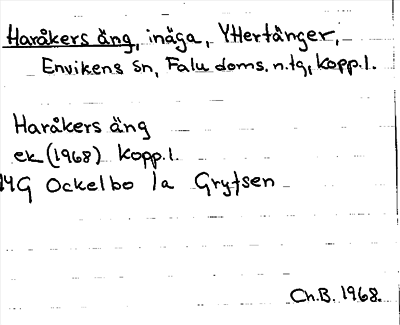 Haråkers äng, inäga, Yttertänger,
Envikens sn, Falu doms. n.tg, Kopp.l.
Haråkers äng
ek (1968) Kopp.l.
14G Ockelbo 1a Grytsen
Ch.B. 1968.